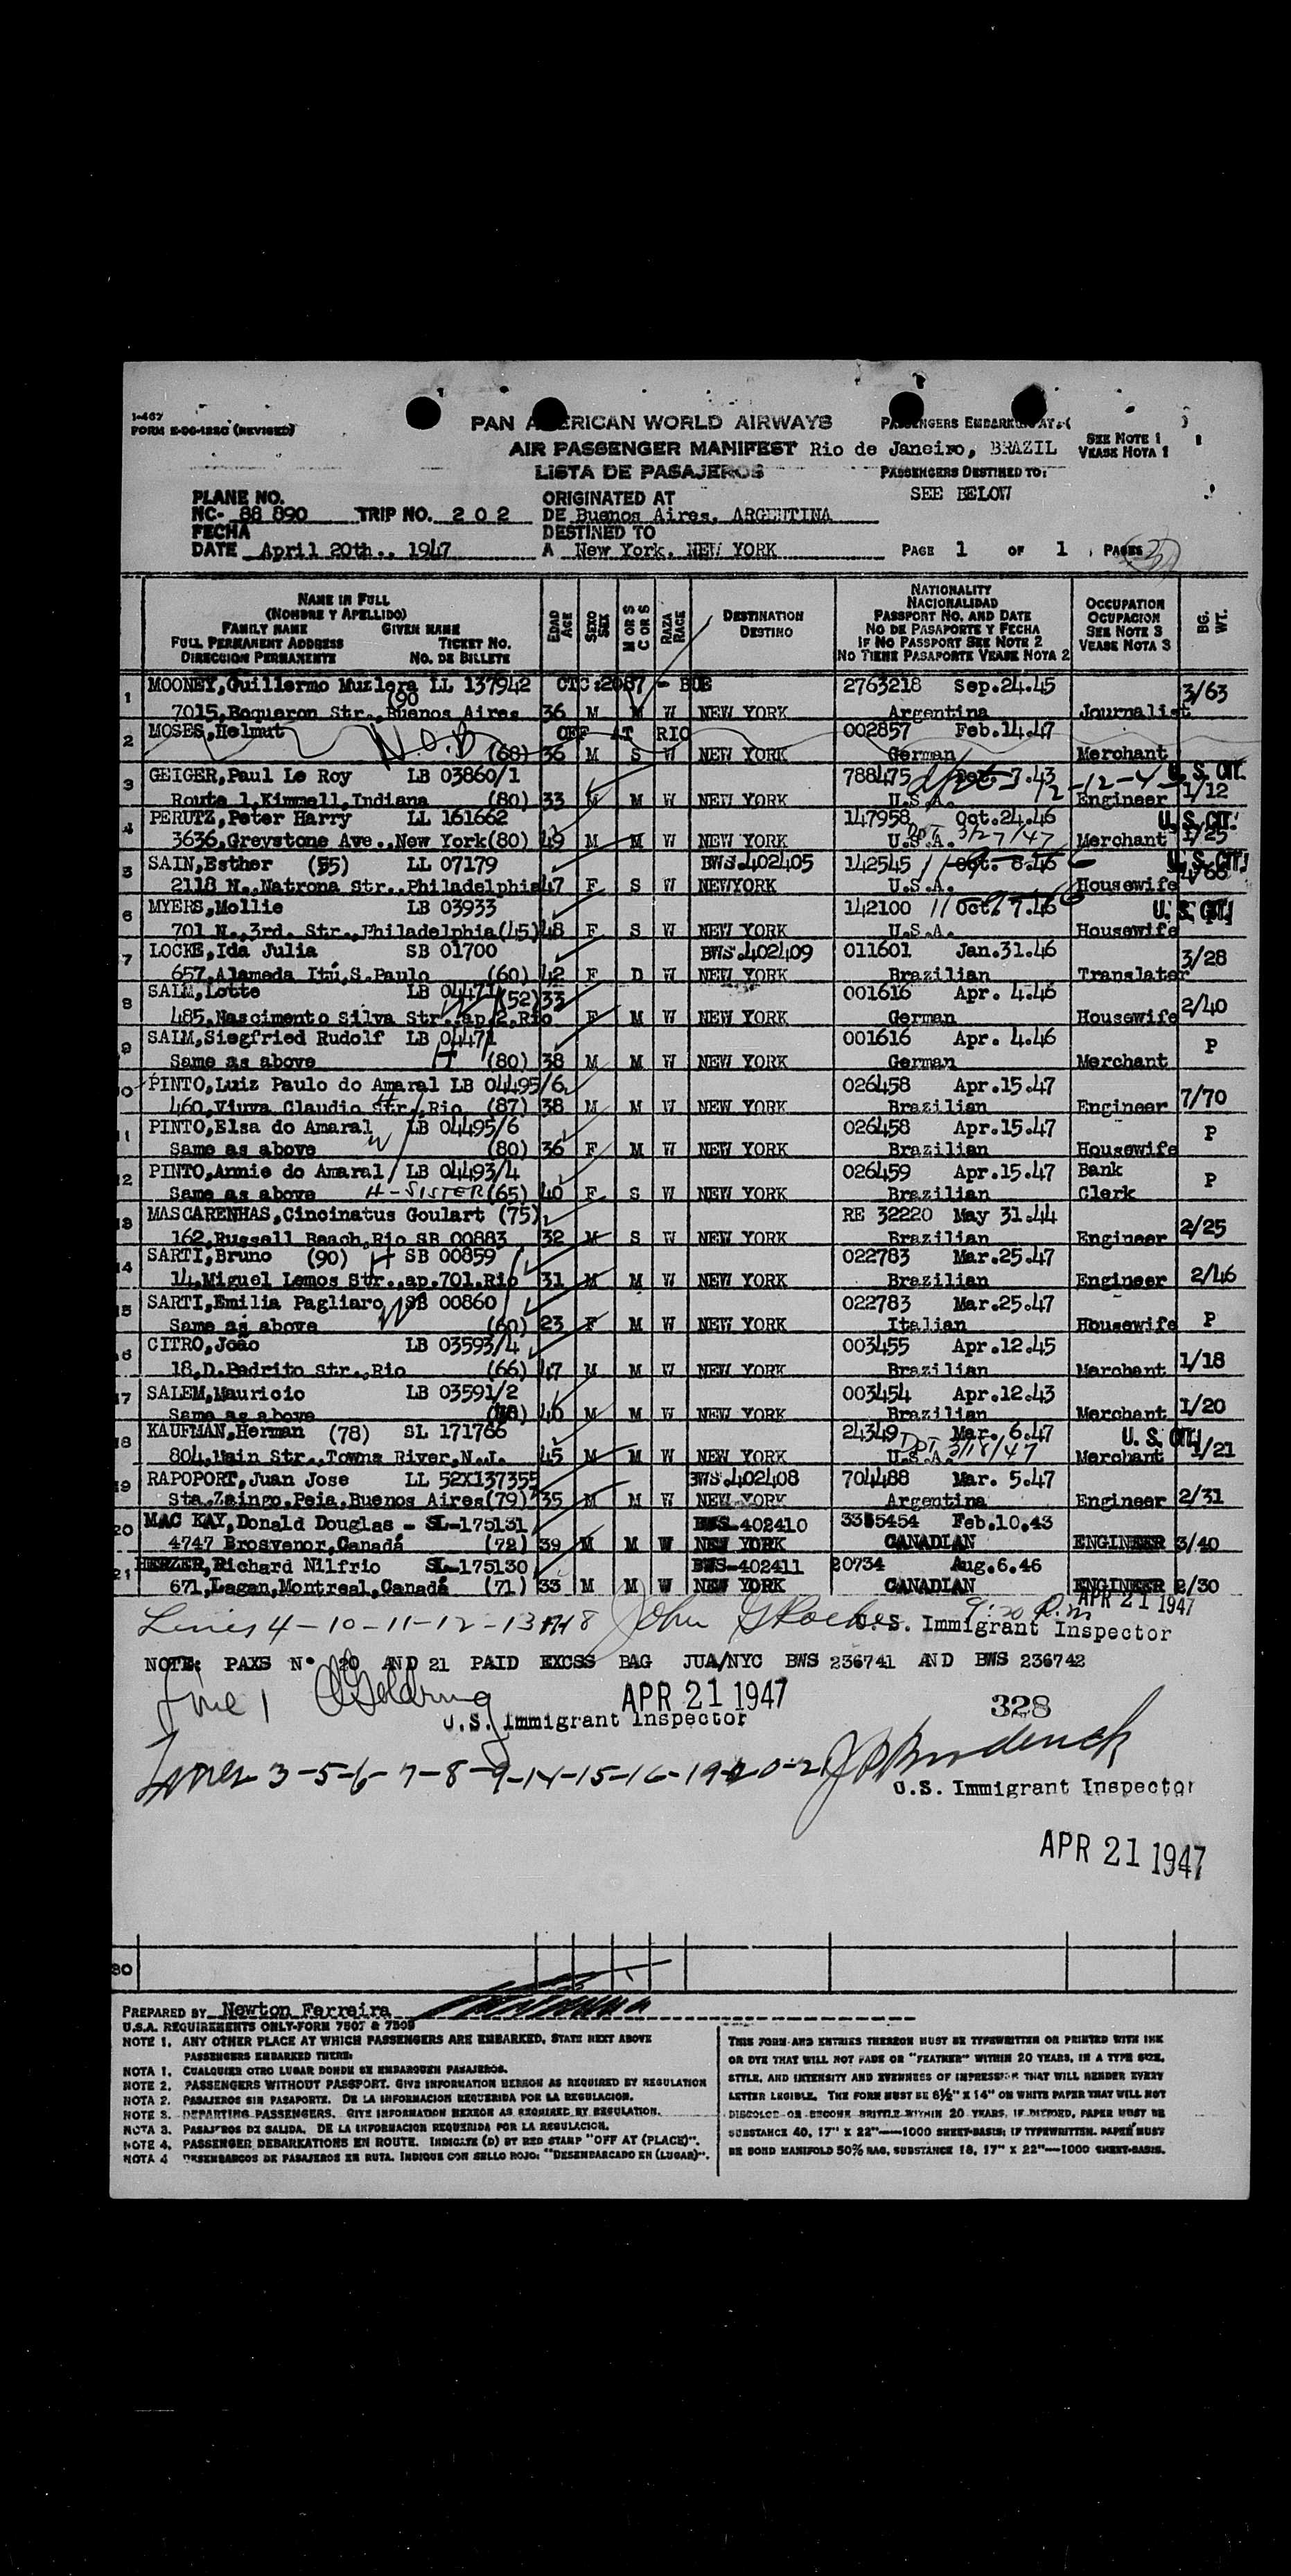 I-467
FORM E-00-122C (REVISED)
PAN AMERICAN WORLD AIRWAYS
AIR PASSENGER MANIFEST
LISTA DE PASAJEROS
PASSENGERS EMBARKED AT:
Rio de Janeiro, BRAZIL
SEE NOTE 1
VEASE NOTA 1
PASSENGERS DESTINED TO:
SEE BELOW
PLANE NO.
NC- 88 890 TRIP NO. 2 0 2
FECHA
DATE April 20th., 1947
ORIGINATED AT
DE Buenos Aires, ARGENTINA
DESTINED TO
A New York, NEW YORK
PAGE 1 OF 1 PAGES
NAME IN FULL
(NOMBRE Y APELLIDO)
FAMILY NAME GIVEN NAME
FULL PERMANENT ADDRESS TICKET NO.
DIRECCION PERMANENTE NO. DE BILLETE
EDAD AGE
SEXO SEX
M OR S C OR S
RAZA RACE
DESTINATION
DESTINO
NATIONALITY
NACIONALIDAD
PASSPORT NO. AND DATE
NO DE PASAPORTE Y FECHA
IF NO PASSPORT SEE NOTE 2
NO TIENE PASAPORTE VEASE NOTA 2
OCCUPATION
OCUPACION
SEE NOTE 3
VEASE NOTA 3
BG. WT.
1 MOONEY,Guillermo Muzlera LL 137942 CTC:2087 - BUE 2763218 Sep.24.45 3/63
(90
7015,Boqueron Str.,Buenos Aires 36 M M W NEW YORK Argentina Journalist
2 MOSES,Helmut OFF AT RIO 002857 Feb.14.47
N.O.B (68) 36 M S W NEW YORK German Merchant
3 GEIGER,Paul Le Roy LB 03860/1 788475 U. S. CIT.
Route 1,Kimmell,Indiana (80) 33 M M W NEW YORK U.S.A. Engineer 1/12
4 PERUTZ,Peter Harry LL 161662 147958 Oct.24.46 U. S. CIT.
3636,Greystone Ave.,New York(80) 49 M M W NEW YORK U.S.A. 3/27/47 Merchant 1/25
5 SAIN,Esther (55) LL 07179 BWS.402405 142545 Oct. 8.46 U. S. CIT.
2118 N.,Natrona Str.,Philadelphia 47 F S W NEWYORK U.S.A. Housewife 4/66
6 MYERS,Mollie LB 03933 142100 Oct. 7.46 U. S. CIT.
701 N.,3rd. Str.,Philadelphia(45) 48 F S W NEW YORK U.S.A. Housewife
7 LOCKE,Ida Julia SB 01700 BWS.402409 011601 Jan.31.46 3/28
657,Alameda Itú,S.Paulo (60) 42 F D W NEW YORK Brazilian Translater
8 SALM,Lotte LB 04471 (52) 33 001616 Apr. 4.46 2/40
485,Nascimento Silva Str.,ap.2,Rio F M W NEW YORK German Housewife
9 SALM,Siegfried Rudolf LB 04471 001616 Apr. 4.46 P
Same as above H (80) 38 M M W NEW YORK German Merchant
10 PINTO,Luiz Paulo do Amaral LB 04495/6 026458 Apr.15.47 7/70
460,Viuva Claudio Str.,Rio (87) 38 M M W NEW YORK Brazilian Engineer
11 PINTO,Elsa do Amaral LB 04495/6 026458 Apr.15.47 P
Same as above W (80) 36 F M W NEW YORK Brazilian Housewife
12 PINTO,Annie do Amaral LB 04493/4 026459 Apr.15.47 Bank P
Same as above H-SISTER (65) 40 F S W NEW YORK Brazilian Clerk
13 MASCARENHAS,Cincinatus Goulart (75) RE 32220 May 31.44
162,Russell Beach,Rio SB 00883 32 M S W NEW YORK Brazilian Engineer 2/25
14 SARTI,Bruno (90) H SB 00859 022783 Mar.25.47
14,Miguel Lemos Str.,ap.701,Rio 31 M M W NEW YORK Brazilian Engineer 2/46
15 SARTI,Emilia Pagliaro W SB 00860 022783 Mar.25.47
Same as above (60) 23 F M W NEW YORK Italian Housewife P
16 CITRO,João LB 03593/4 003455 Apr.12.45
18,D.Pedrito Str.,Rio (66) 47 M M W NEW YORK Brazilian Merchant 1/18
17 SALEM,Mauricio LB 03591/2 003454 Apr.12.43
Same as above 40 M M W NEW YORK Brazilian Merchant 1/20
18 KAUFMAN,Herman (78) SL 171766 24349 Mar. 6.47 U. S. CIT.
804,Main Str.,Towns River,N.J. 45 M M W NEW YORK U.S.A. 3/18/47 Merchant 1/21
19 RAPOPORT,Juan Jose LL 52X137355 BWS.402408 704488 Mar. 5.47
Sta.Zaingo.Peia.Buenos Aires(79) 35 M M W NEW YORK Argentina Engineer 2/31
20 MAC KAY,Donald Douglas - SL-175131 BWS-402410 3385454 Feb.10.43
4747 Brosvenor,Canadá (72) 39 M M W NEW YORK CANADIAN ENGINEER 3/40
21 HERZER,Richard Nilfrio SL-175130 BWS-402411 20734 Aug.6.46
671,Lagan,Montreal,Canadá (71) 33 M M W NEW YORK CANADIAN ENGINEER 2/30
9:20 P.m APR 21 1947
Lines 4-10-11-12-13-17-18 U.S. Immigrant Inspector
NOTE: PAXS Nº 20 AND 21 PAID EXCSS BAG JUA/NYC BWS 236741 AND BWS 236742
Line 1 APR 21 1947 328
U.S. Immigrant Inspector
Lines 3-5-6-7-8-9-14-15-16-19-20-21
U.S. Immigrant Inspector
APR 21 1947
30
PREPARED BY Newton Ferreira
U.S.A. REQUIREMENTS ONLY-FORM 7507 & 7509
NOTE 1. ANY OTHER PLACE AT WHICH PASSENGERS ARE EMBARKED, STATE NEXT ABOVE
PASSENGERS EMBARKED THERE:
NOTA 1. CUALQUIER OTRO LUGAR DONDE SE EMBARQUEN PASAJEROS.
NOTE 2. PASSENGERS WITHOUT PASSPORT. GIVE INFORMATION HEREON AS REQUIRED BY REGULATION
NOTA 2. PASAJEROS SIN PASAPORTE. DE LA INFORMACION REQUERIDA POR LA REGULACION.
NOTE 3. DEPARTING PASSENGERS. GIVE INFORMATION HEREON AS REQUIRED BY REGULATION.
NOTA 3. PASAJEROS DE SALIDA. DE LA INFORMACION REQUERIDA POR LA REGULACION.
NOTE 4. PASSENGER DEBARKATIONS EN ROUTE. INDICATE (D) BY RED STAMP "OFF AT (PLACE)".
NOTA 4 DESEMBARCOS DE PASAJEROS EN RUTA. INDIQUE CON SELLO ROJO: "DESEMBARCADO EN (LUGAR)".
THIS FORM AND ENTRIES THEREON MUST BE TYPEWRITTEN OR PRINTED WITH INK
OR DYE THAT WILL NOT FADE OR "FEATHER" WITHIN 20 YEARS, IN A TYPE SIZE,
STYLE, AND INTENSITY AND EVENNESS OF IMPRESSION THAT WILL RENDER EVERY
LETTER LEGIBLE. THE FORM MUST BE 8½" X 14" ON WHITE PAPER THAT WILL NOT
DISCOLOR OR BECOME BRITTLE WITHIN 20 YEARS. IF DITTOED, PAPER MUST BE
SUBSTANCE 40, 17" X 22"—1000 SHEET-BASIS; IF TYPEWRITTEN, PAPER MUST
BE BOND MANIFOLD 50% RAG, SUBSTANCE 18, 17" X 22"—1000 SHEET-BASIS.